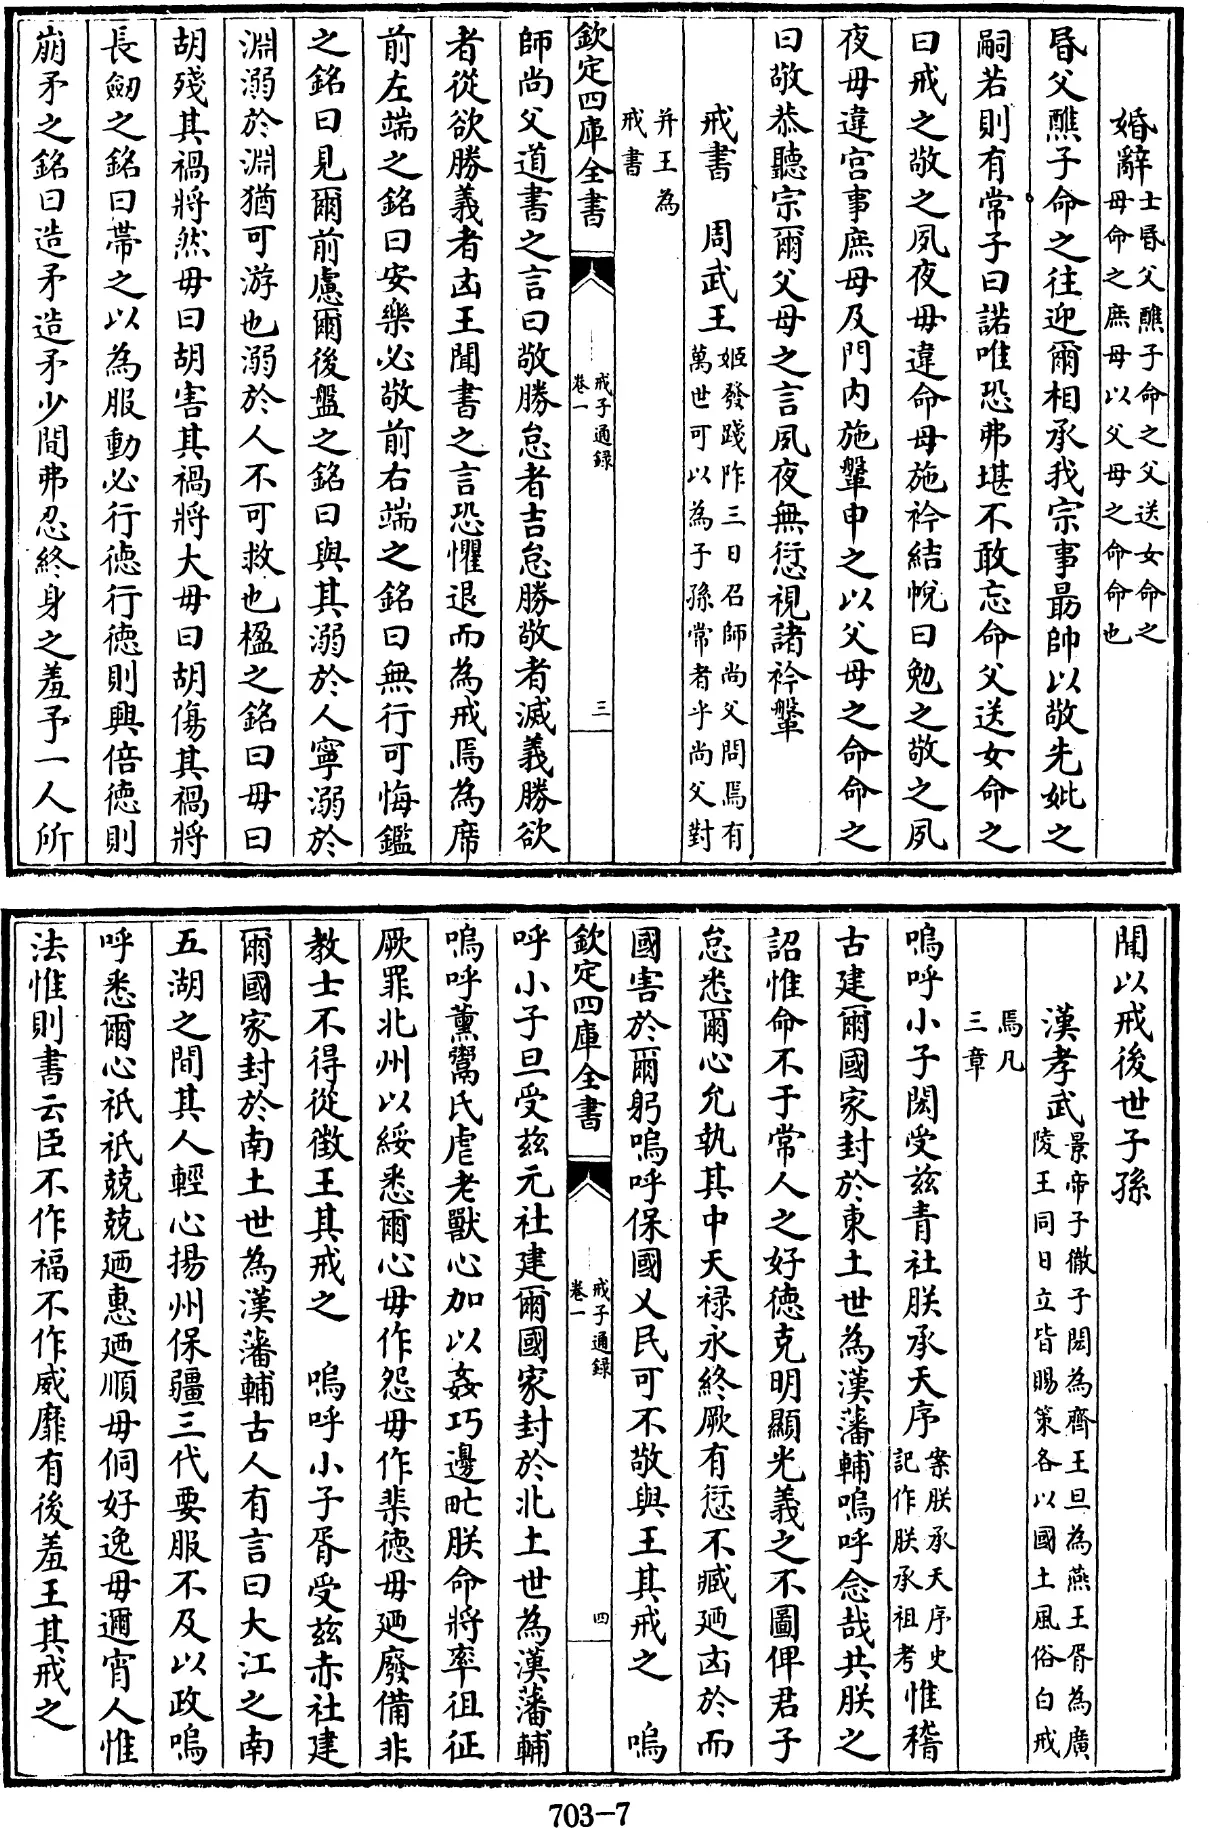 婚辭士昏父醮子命之父送女命之母命之庶母以父母之命命也
昏父醮子命之往迎爾相承我宗事最帥以敬先妣之
嗣若則有常子曰諾唯恐弗堪不敢忘命父送女命之
曰戒之敬之夙夜毋違命母施衿結帨曰勉之敬之夙
夜毋違宫事庶母及門内施鞶申之以父母之命命之
曰敬恭聽宗爾父母之言夙夜無愆視諸衿鞶
戒書　周武王姬發踐阼三日召師尚父問焉有萬世可以為子孫常者乎尚父對
并王為戒書
欽定四庫全書　戒子通録卷一　三
師尚父道書之言曰敬勝怠者吉怠勝敬者滅義勝欲
者從欲勝義者凶王聞書之言恐懼退而為戒焉為席
前左端之銘曰安樂必敬前右端之銘曰無行可悔鑑
之銘曰見爾前慮爾後盤之銘曰與其溺於人寧溺於
淵溺於淵猶可游也溺於人不可救也楹之銘曰毋曰
胡殘其禍將然毋曰胡害其禍將大毋曰胡傷其禍將
長劒之銘曰帶之以為服動必行德行德則興倍德則
崩矛之銘曰造矛造矛少間弗忍終身之羞予一人所
聞以戒後世子孫
漢孝武景帝子徹子閎為齊王旦為燕王胥為廣陵王同日立皆賜策各以國土風俗白戒
焉凡三章
嗚呼小子閎受兹青社朕承天序案朕承天序史記作朕承祖考惟稽
古建爾國家封於東土世為漢藩輔嗚呼念哉共朕之
詔惟命不于常人之好德克明顯光義之不圖俾君子
怠悉爾心允執其中天禄永終厥有愆不臧廼凶於而
國害於爾躬嗚呼保國乂民可不敬與王其戒之　嗚
欽定四庫全書　戒子通録卷一　四
呼小子旦受兹元社建爾國家封於北土世為漢藩輔
嗚呼薰鬻氏虐老獸心加以姦巧邊甿朕命將率徂征
厥罪北州以綏悉爾心毋作怨毋作棐德毋廼廢備非
教士不得從徵王其戒之　嗚呼小子胥受兹赤社建
爾國家封於南土世為漢藩輔古人有言曰大江之南
五湖之間其人輕心揚州保疆三代要服不及以政嗚
呼悉爾心祇祇兢兢廼惠廼順毋侗好逸毋邇宵人惟
法惟則書云臣不作福不作威靡有後羞王其戒之
703-7